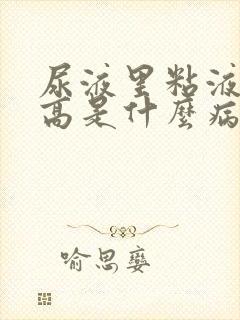 尿液里粘液
高是什麼病
喻思孌